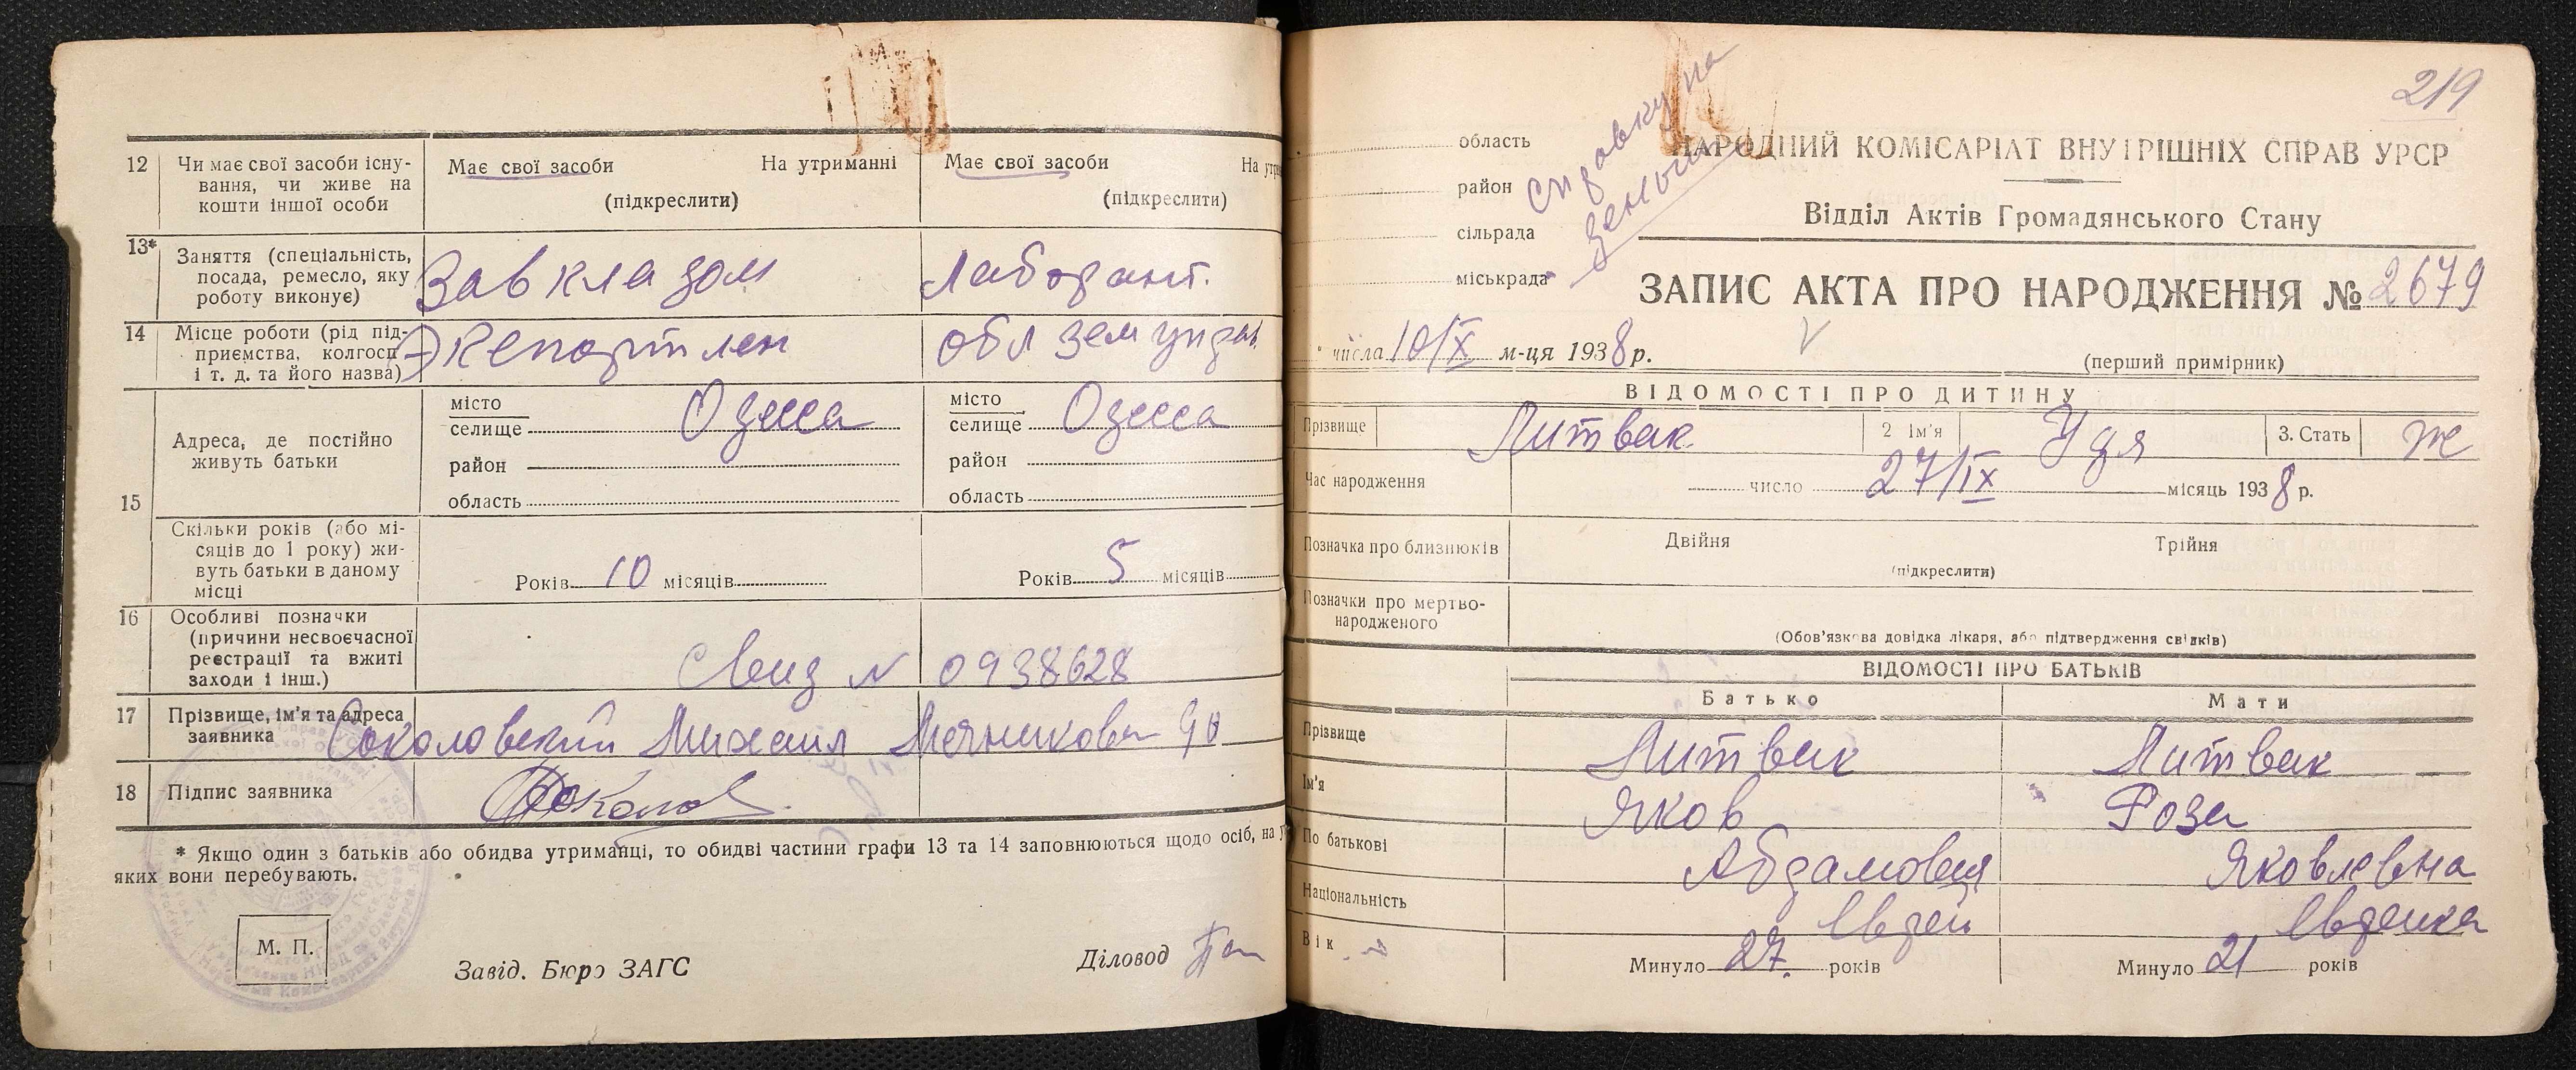 12 Чи має свої засоби існу-
вання, чи живе на
кошти іншої особи
Має свої засоби На утриманні
(підкреслити)
Має свої засоби На утри
(підкреслити)
13* Заняття (спеціальність,
посада, ремесло, яку
роботу виконує)
Зав кладом
Лаборант.
14 Місце роботи (рід під-
приємства, колгосп
і т. д. та його назва)
Экспортлен
обл зем управ
15 Адреса, де постійно
живуть батьки
місто
селище Одесса
район
область
місто
селище Одесса
район
область
Скільки років (або мі-
сяців до 1 року) жи-
вуть батьки в даному
місці
Років 10 місяців
Років 5 місяців
16 Особливі позначки
(причини несвоєчасної
реєстрації та вжиті
заходи і інш.)
N 0938628
17 Прізвище, ім'я та адреса
заявника
Соколовский Михаил Мечникова 90
18 Підпис заявника
* Якщо один з батьків або обидва утриманці, то обидві частини графи 13 та 14 заповнюються щодо осіб, на у
яких вони перебувають.
М. П.
Завід. Бюро ЗАГС
Діловод
219
Справку на
область
район
сільрада
міськрада
НАРОДНИЙ КОМІСАРІАТ ВНУТРІШНІХ СПРАВ УРСР
Відділ Актів Громадянського Стану
ЗАПИС АКТА ПРО НАРОДЖЕННЯ № 2679
числа 10/X м-ця 1938 р.
(перший примірник)
ВІДОМОСТІ ПРО ДИТИНУ
Прізвище Литвак 2 Ім'я Удя 3. Стать ж
Час народження число 27/IX місяць 1938 р.
Позначка про близнюків Двійня Трійня
(підкреслити)
Позначки про мертво-
народженого
(Обов'язкова довідка лікаря, або підтвердження свідків)
ВІДОМОСТІ ПРО БАТЬКІВ
Батько Мати
Прізвище Литвак Литвак
Ім'я Яков Роза
По батькові Абрамович Яковлевна
Національність Еврей Еврейка
Вік Минуло 27. років Минуло 21 років